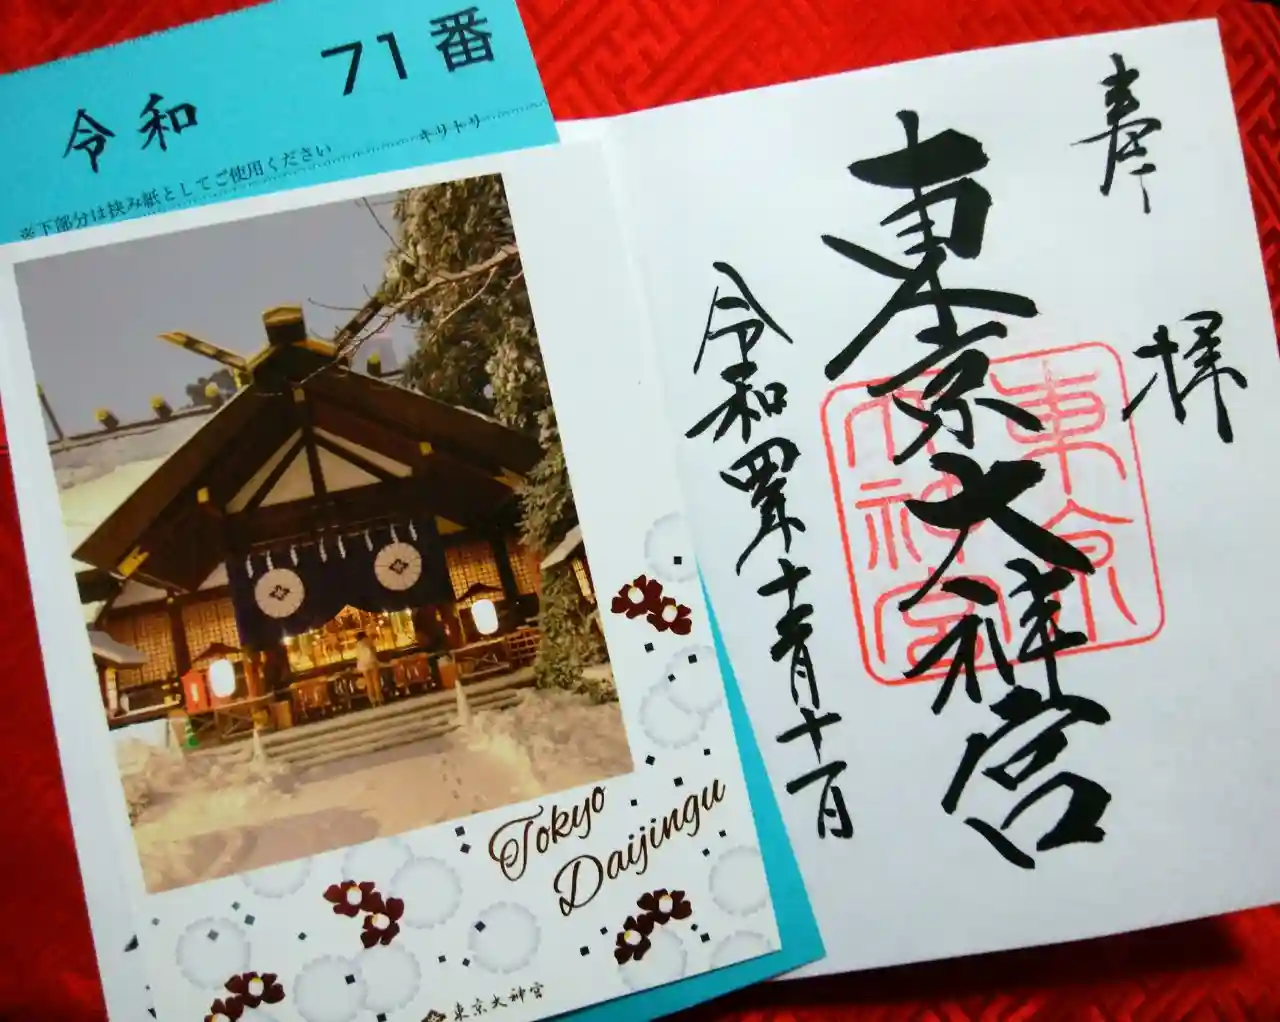 71番
令和
キリトリ
※下部分は挟み紙としてご使用ください
Tokyo
Daijingu
東京大神宮
奉拝
東京大神宮
東京
大神宮
令和四年十一月十一日